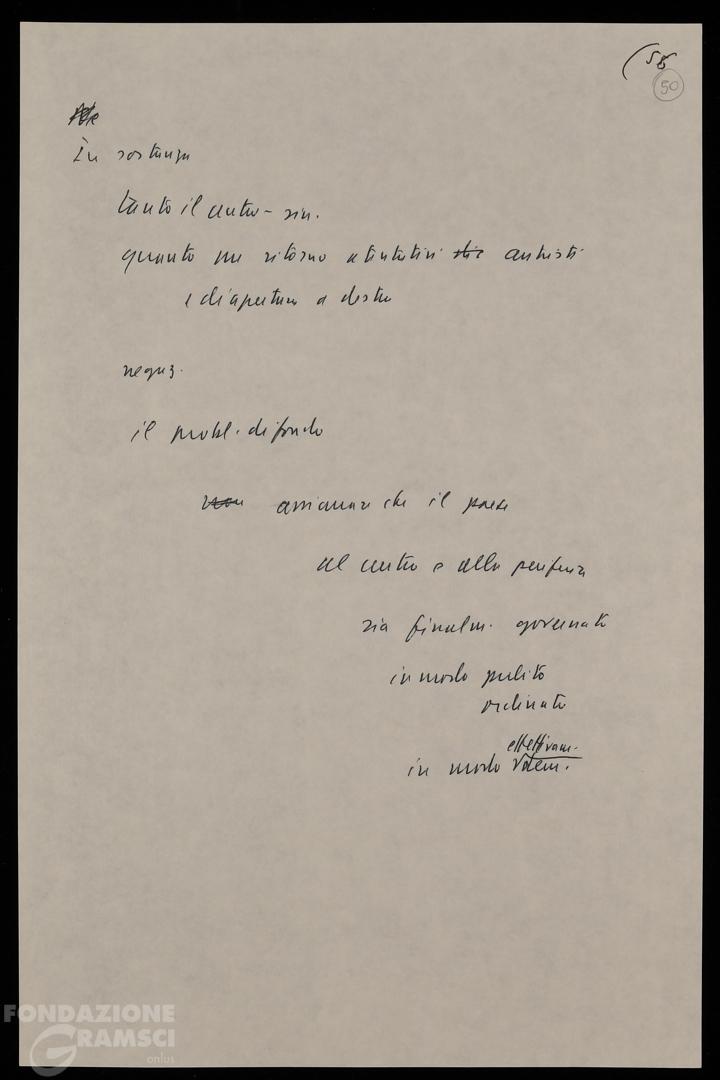 (58
50
In sostanza
tanto il centro-sin.
quanto un ritorno a tentativi centristi
e di apertura a destra
negaz.
il probl. di fondo
assicurare che il paese
al centro e alla periferia
sia finalm. governato
in modo pulito
ordinato
effettivam.
in modo dem.
FONDAZIONE
GRAMSCI
onlus